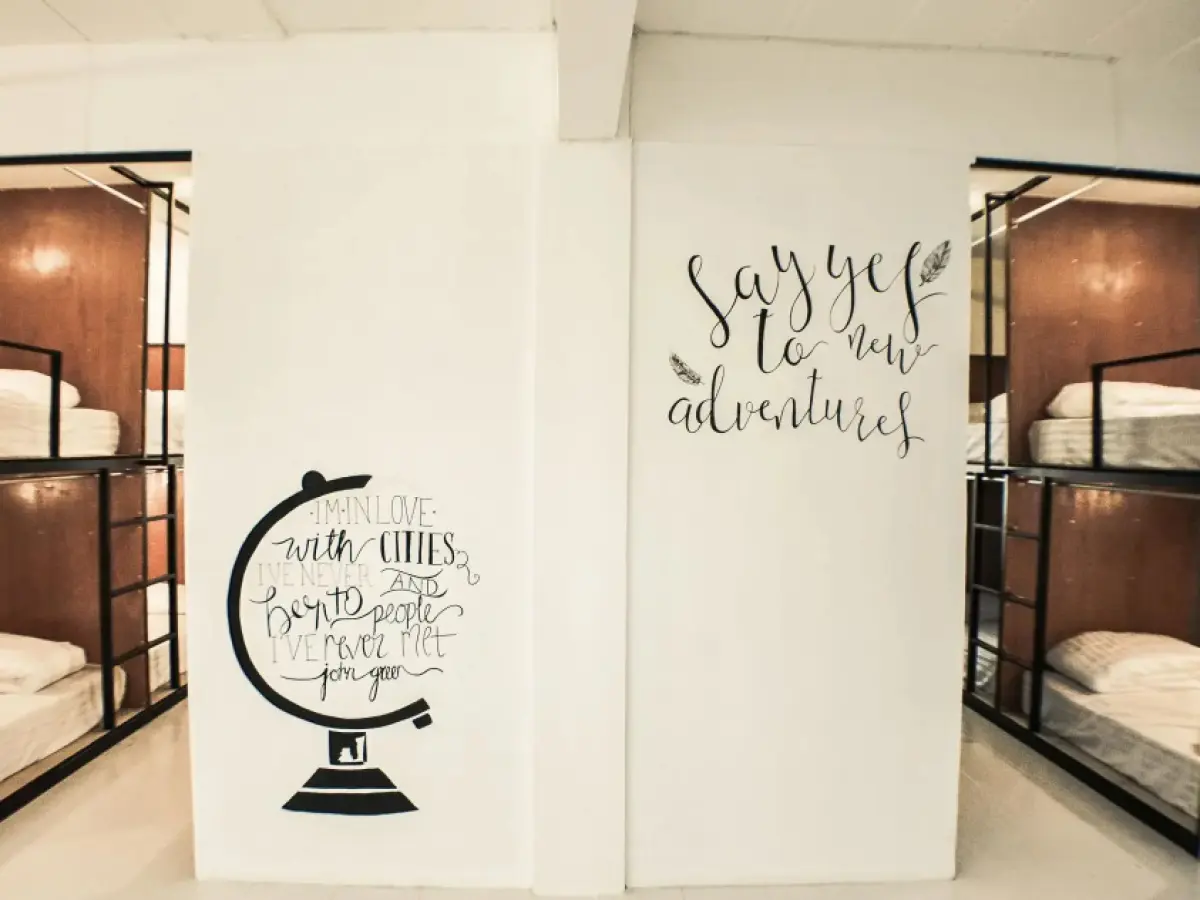 ·I'M·IN LOVE·
with CITIES
I'VE NEVER AND
BEEN TO people
I'VE never MET
john green
say yes
to new
adventures